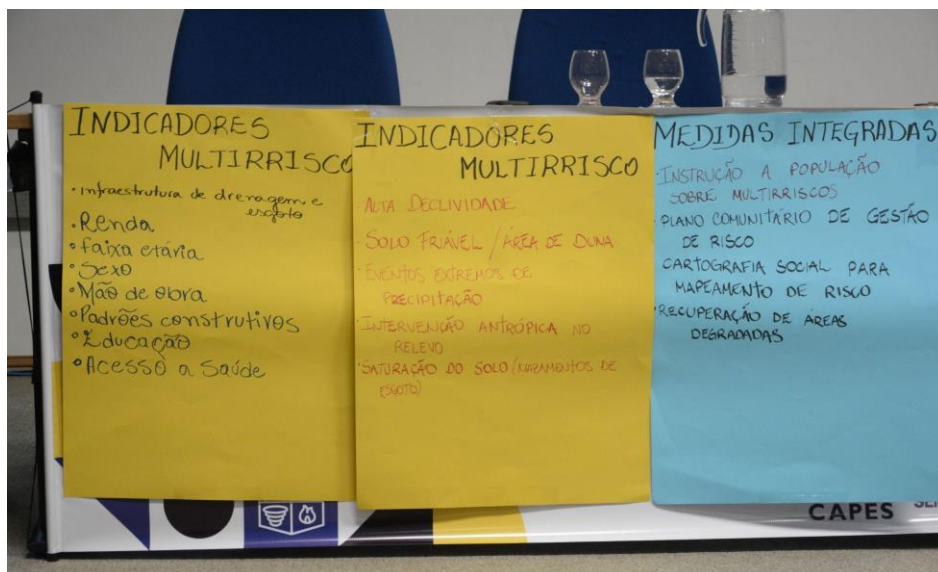 INDICADORES
MULTIRRISCO
• Infraestrutura de drenagem e
esgoto
• Renda
• faixa etária
• Sexo
• Mão de obra
• Padrões construtivos
• Educação
• Acesso a Saúde
INDICADORES
MULTIRRISCO
• ALTA DECLIVIDADE
• SOLO FRIÁVEL / ÁREA DE DUNA
• EVENTOS EXTREMOS DE
PRECIPITAÇÃO
• INTERVENÇÃO ANTRÓPICA NO
RELEVO
• SATURAÇÃO DO SOLO (VAZAMENTOS DE
ESGOTO)
MEDIDAS INTEGRADAS
• INSTRUÇÃO A POPULAÇÃO
SOBRE MULTIRRISCOS
• PLANO COMUNITÁRIO DE GESTÃO
DE RISCO
CARTOGRAFIA SOCIAL PARA
MAPEAMENTO DE RISCO
• RECUPERAÇÃO DE ÁREAS
DEGRADADAS
CAPES